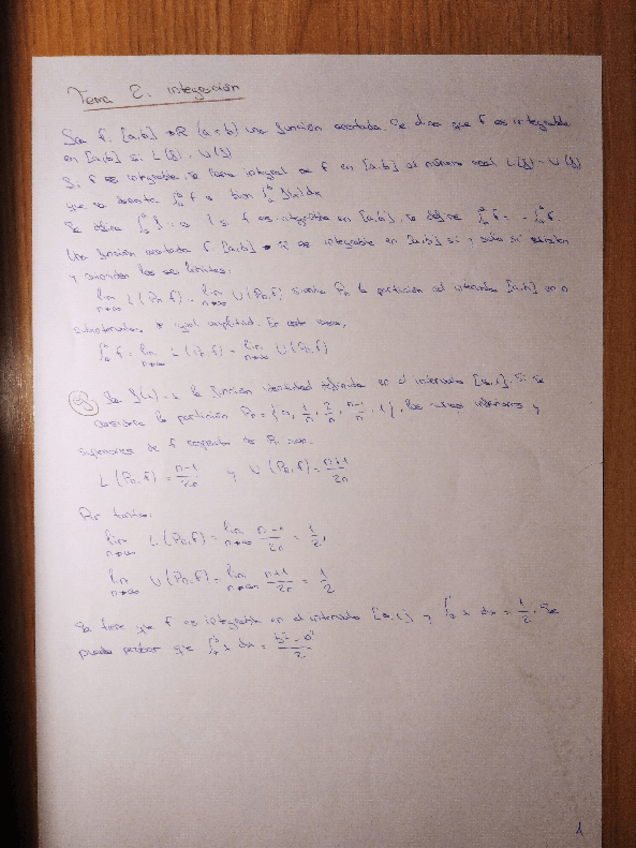 Tema 8. Integración
Sea f: [a,b] → R (a<b) una función acotada. Se dice que f es integrable
en [a,b] si L(f) = U(f)
Si f es integrable, se llama integral de f en [a,b] al número real L(f) = U(f)
que se denota ∫ₐᵇ f o bien ∫ₐᵇ f(x)dx
Se define ∫ₐᵃ f = 0 si f es integrable en [a,b], se define ∫ f = - ∫ f.
Una función acotada f: [a,b] → R es integrable en [a,b] si y solo si existen
y coinciden los límites:
lim n→∞ L(Pn,f) = lim n→∞ U(Pn,f) siendo Pn la partición del intervalo [a,b] en n
subintervalos de igual amplitud. En este caso,
∫ₐᵇ f = lim n→∞ L(Pn,f) = lim n→∞ U(Pn,f)
Ej Sea f(x) = x la función identidad definida en el intervalo [0,1]. Si se
considera la partición Pn = {0, 1/n, 2/n, n-1/n, 1}, las sumas inferiores y
superiores de f respecto de Pn son:
L(Pn,f) = n-1/2n y U(Pn,f) = n+1/2n
Por tanto:
lim n→∞ L(Pn,f) = lim n→∞ n-1/2n = 1/2,
lim n→∞ U(Pn,f) = lim n→∞ n+1/2n = 1/2
Se tiene que f es integrable en el intervalo [0,1] y ∫₀¹ x dx = 1/2. Se
puede probar que ∫ₐᵇ x dx = b²-a²/2
1